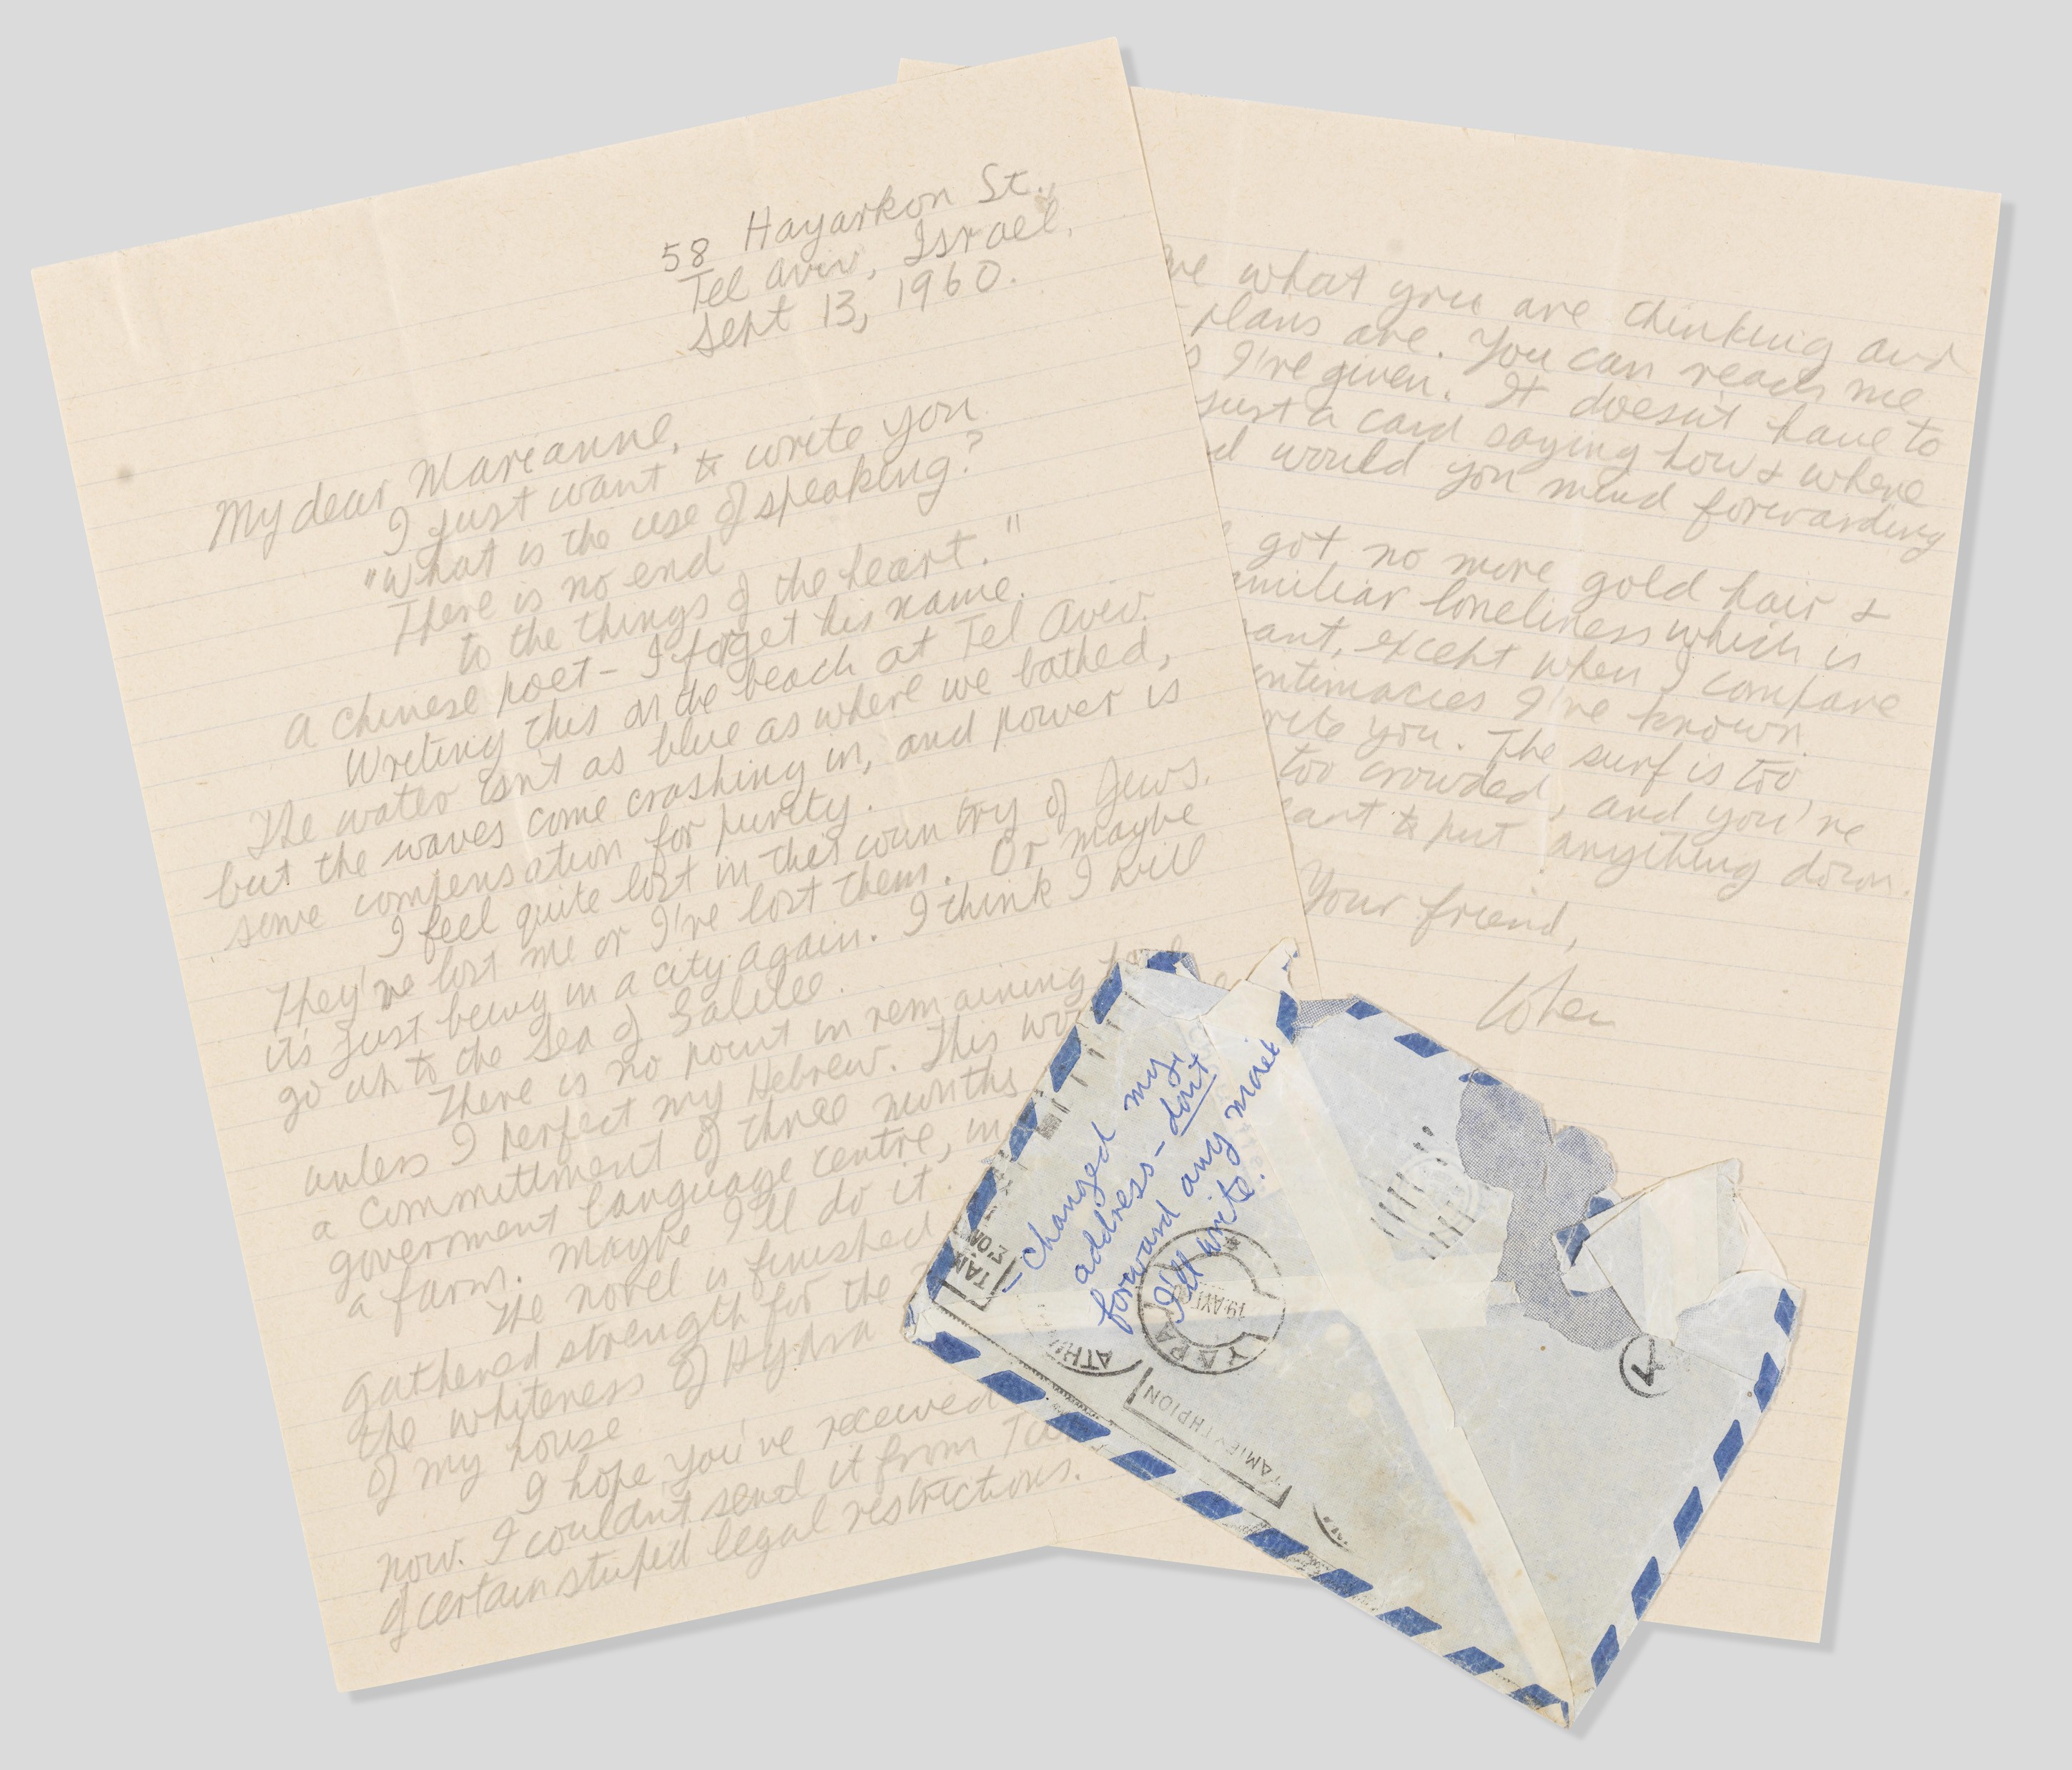 58 Hayarkon St.,
Tel Aviv, Israel,
Sept 13, 1960.
My dear Marianne,
I just want to write you
"What is the use of speaking?
There is no end
to the things of the heart."
A Chinese poet - I forget his name.
Writing this on the beach at Tel Aviv.
The water isn't as blue as where we bathed,
but the waves come crashing in, and power is
some compensation for purity.
I feel quite lost in this country of Jews.
They've lost me or I've lost them. Or maybe
it's just being in a city again. I think I will
go up to the Sea of Galilee.
There is no point in remaining
unless I perfect my Hebrew. This
a committment of three months
government language centre, in
a farm. Maybe I'll do it
The novel is finished
gathered strength for the
the whiteness of Hydra
of my house
I hope you've received
now. I couldn't send it from
of certain stupid legal restrictions.
me what you are thinking and
plans are. You can reach me
I've given. It doesn't have to
just a card saying how & where
would you mind forwarding
got no more gold hair &
loneliness which is
except when I compare
intimacies I've known.
write you. The surf is too
too crowded, and you're
want to put anything down.
Your friend,
Cohen
- Changed my
address - don't
forward any more
I'll write.
ΤΑΜΙΕΥΤΗΡΙΟΝ
4